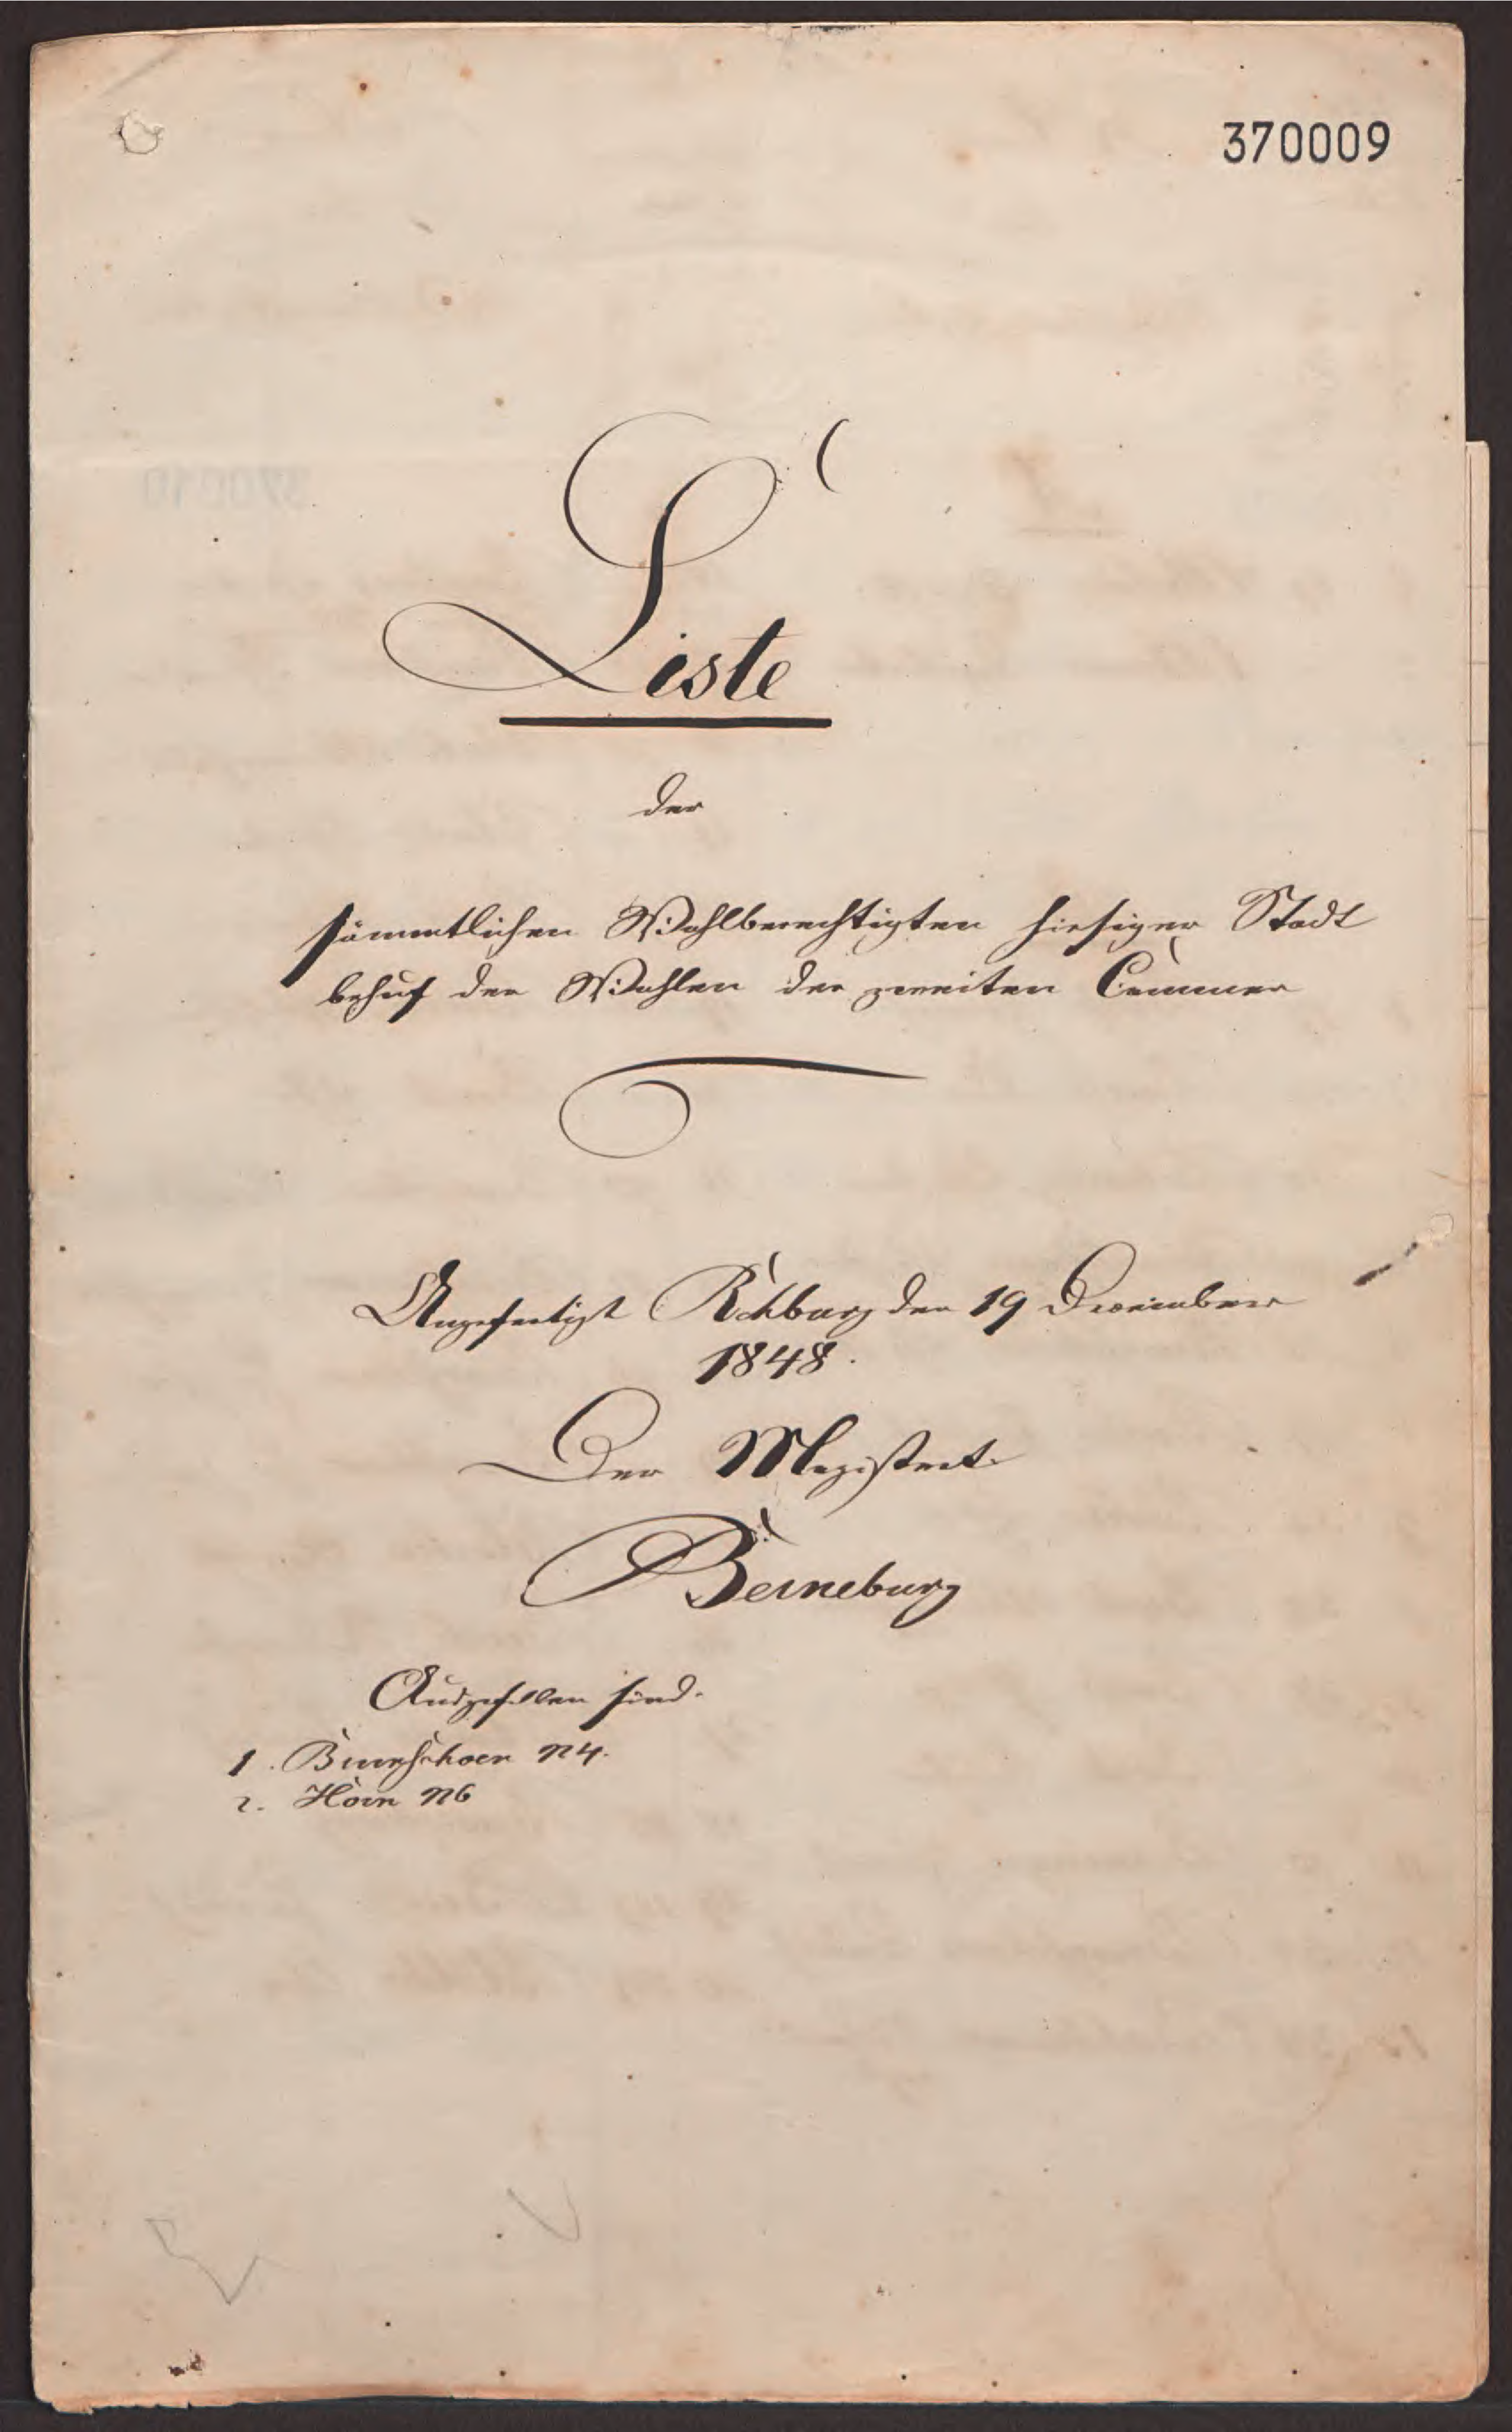 370009
Liste
der
sämmtlichen Wahlberechtigten hiesiger Stadt
behuf der Wahlen der zweiten Cammer
Angefertigt Rehburg den 19 December
1848.
Der Magistrat
Berneburg
Ausgefallen sind.
1. N4.
2. Horn N6